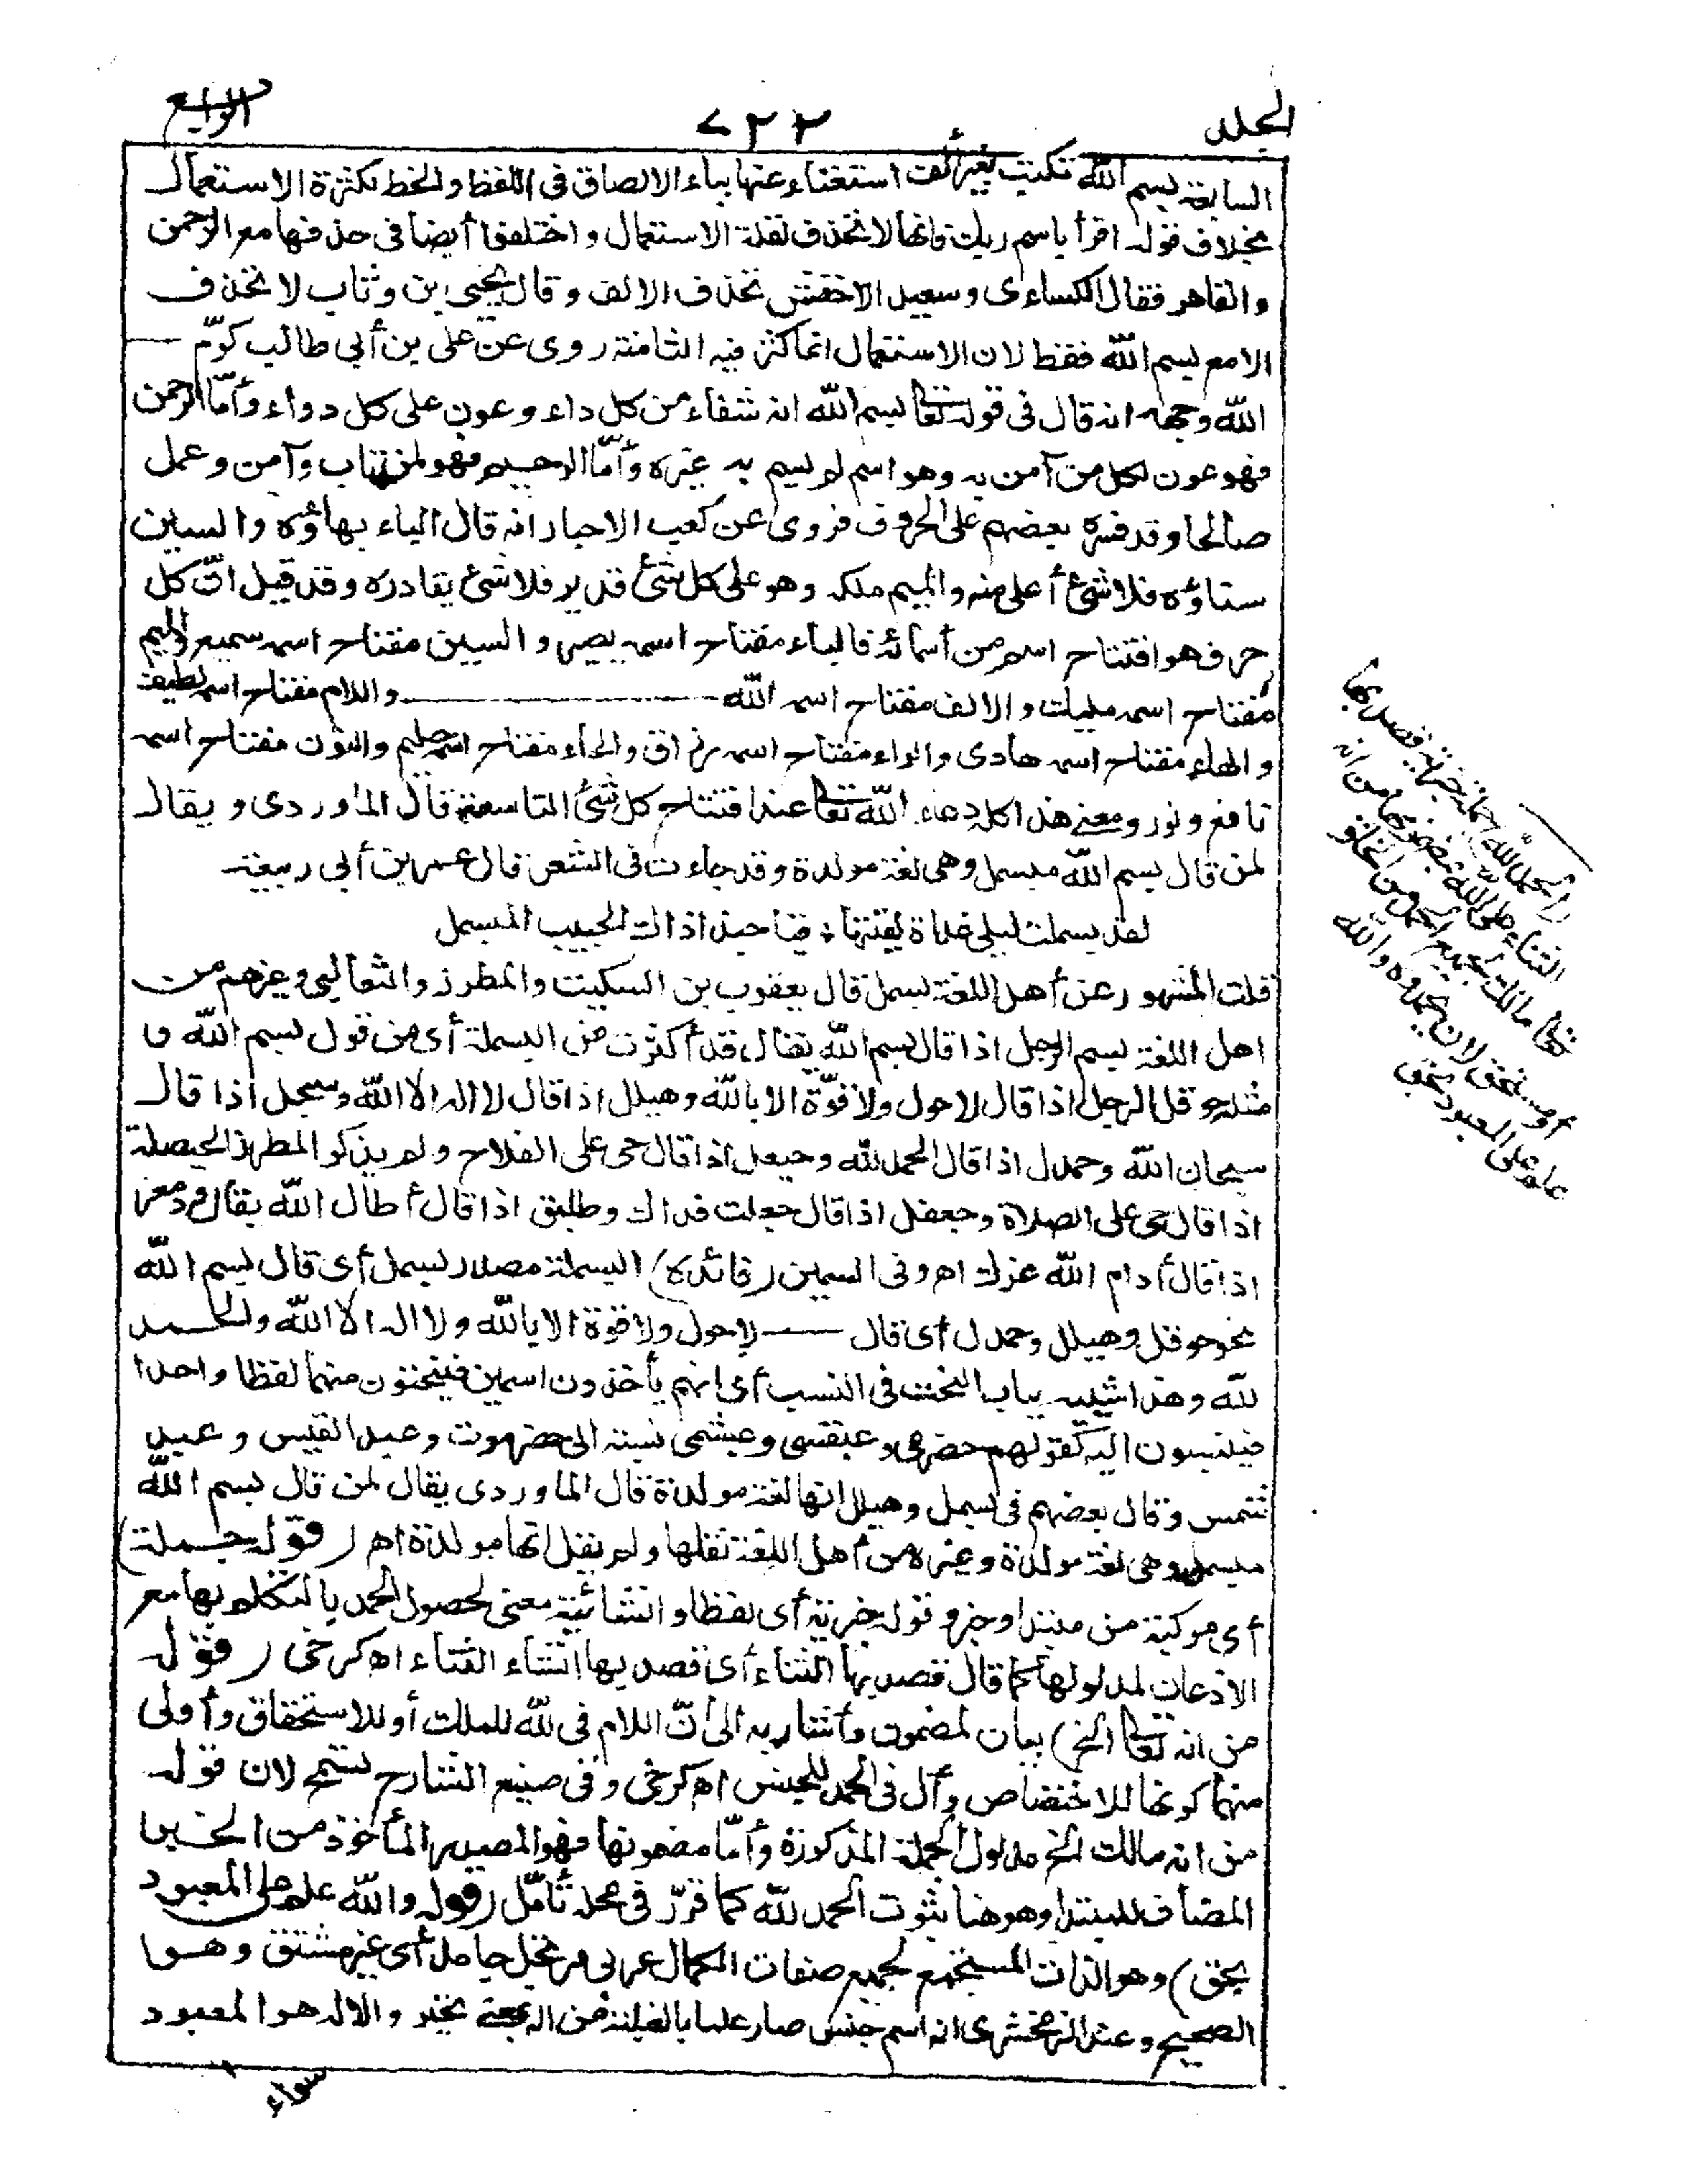 الجلد
٧٢٢
الرابع
السابعة بسم الله تكتب بغير ألف استغناء عنها بباء الالصاق فى اللفظ والخط لكثرة الاستعمال
بخلاف قوله اقرأ باسم ربك فانها لا تحذف لقلة الاستعمال واختلفوا أيضا فى حذفها مع الرحمن
والقاهر فقال الكساءى وسعيد الاخفش تحذف الالف وقال يحيى بن وثاب لا تحذف
الا مع بسم الله فقط لان الاستعمال انما كثر فيه الثامنة روى عن على بن أبي طالب كرّم
الله وجهه انه قال فى قوله تعالى بسم الله انه شفاء من كل داء وعون على كل دواء وأمّا الرحمن
فهو عون لكل من آمن به وهو اسم لم يسم به غيره وأمّا الرحيم فهو لمن تاب وآمن وعمل
صالحا وقد فسره بعضهم على الحروف فروى عن كعب الاحبار انه قال الباء بهاؤه والسين
سناؤه فلا شئ أعلى منه والميم ملكه وهو على كل شئ قدير فلا شئ يقادره وقد قيل انّ كل
حرف هو افتتاح اسم من أسمائه فالباء مفتاح اسمه بصير والسين مفتاح اسمه سميع والميم
مفتاح اسمه مليك والالف مفتاح اسمه الله واللام مفتاح اسمه لطيف
والهاء مفتاح اسمه هادى والراء مفتاح اسمه رزاق والحاء مفتاح اسمه حليم والنون مفتاح اسمه
نافع ونور ومعنى هذا كله دعاء الله تعالى عند افتتاح كل شئ التاسعة قال الماوردى ويقال
لمن قال بسم الله مبسمل وهى لغة مولدة وقد جاءت فى الشعر قال عمر بن أبى ربيعة
لقد بسملت ليلى غداة لقيتها ؛ فيا حبذا ذاك الحبيب المبسمل
قلت المشهور عن أهل اللغة بسمل قال يعقوب بن السكيت والمطرز والثعالبى وغيرهم من
اهل اللغة بسمل الرجل اذا قال بسم الله يقال قد أكثرت من البسملة أى من قول بسم الله و
مثله حوقل الرجل اذا قال لا حول ولا قوّة الا بالله وهيلل اذا قال لا اله الا الله وسبحل اذا قال
سبحان الله وحمدل اذا قال الحمد لله وحيعل اذا قال حى على الفلاح ولم يذكر المطرز الحيصلة
اذا قال حى على الصلاة وجعفل اذا قال جعلت فداك وطلبق اذا قال أطال الله بقاك ودمعز
اذا قال أدام الله عزك اهـ وفى السمين (فائدة) البسملة مصدر بسمل أى قال بسم الله
نحو حوقل وهيلل وحمدل أى قال لا حول ولا قوة الا بالله ولا اله الا الله والحمد
لله وهذا شبيه بباب النحت فى النسب أى انهم يأخذون اسمين فينحتون منهما لفظا واحدا
فينسبون اليه كقولهم حضرمى وعبقسى وعبشمى نسبة الى حضرموت وعبد القيس وعبد
شمس وقال بعضهم فى بسمل وهيلل انها لغة مولدة قال الماوردى يقال لمن قال بسم الله
مبسمل وهى لغة مولدة وغيره من أهل اللغة نقلها ولم يقل انها مولدة اهـ (قوله جملة)
أى مركبة من مبتدا وخبر وقوله خبرية أى لفظا وانشائية معنى لحصول الحمد بالتكلم بها مع
الاذعان لمدلولها كما قال قصد بها الثناء أى قصد بها انشاء الثناء اهـ كرخى (قوله
من انه تعالى الخ) بيان لمضمون وأشار به الى أنّ اللام فى لله للملك أو للاستحقاق وأولى
منهما كونها للاختصاص وأل فى الحمد للجنس اهـ كرخى وفى صنيع الشارح تسمح لان قوله
من انه مالك الخ مدلول الجملة المذكورة وأمّا مضمونها فهو المصدر المأخوذ من الخبر
المضاف للمبتدا وهو هنا ثبوت الحمد لله كما قرّر فى محله تأمّل (قوله والله علم على المعبود
بحق) وهو الذات المستجمع لجميع صفات الكمال عربى مرتجل جامد أى غير مشتق وهو
الصحيح وعند الزمخشرى انه اسم جنس صار علما بالغلبة من اله بمعنى تحير والاله هو المعبود
سواء
(الحمد لله) جملة خبرية قصد بها
الثناء على الله بمضمونها من انه
تعالى مالك لجميع الحمد من الخلق
أو مستحق لان يحمدوه والله
علم على المعبود بحق